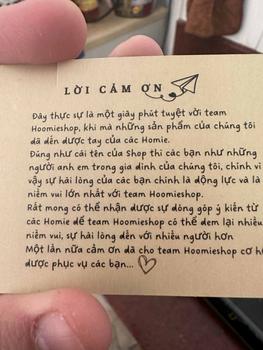 LỜI CẢM ƠN
Đây thực sự là một giây phút tuyệt vời team
Hoomieshop, khi mà những sản phẩm của chúng tôi
đã đến được tay của các Homie.
Đúng như cái tên của Shop thì các bạn như những
người anh em trong gia đình của chúng tôi, chính vì
vậy sự hài lòng của các bạn chính là động lực và là
niềm vui lớn nhất với team Hoomieshop.
Rất mong có thể nhận được sự đóng góp ý kiến từ
các Homie để team Hoomieshop có thể đem lại nhiều
niềm vui, sự hài lòng đến với nhiều người hơn
Một lần nữa cảm ơn đã cho team Hoomieshop cơ h
được phục vụ các bạn...